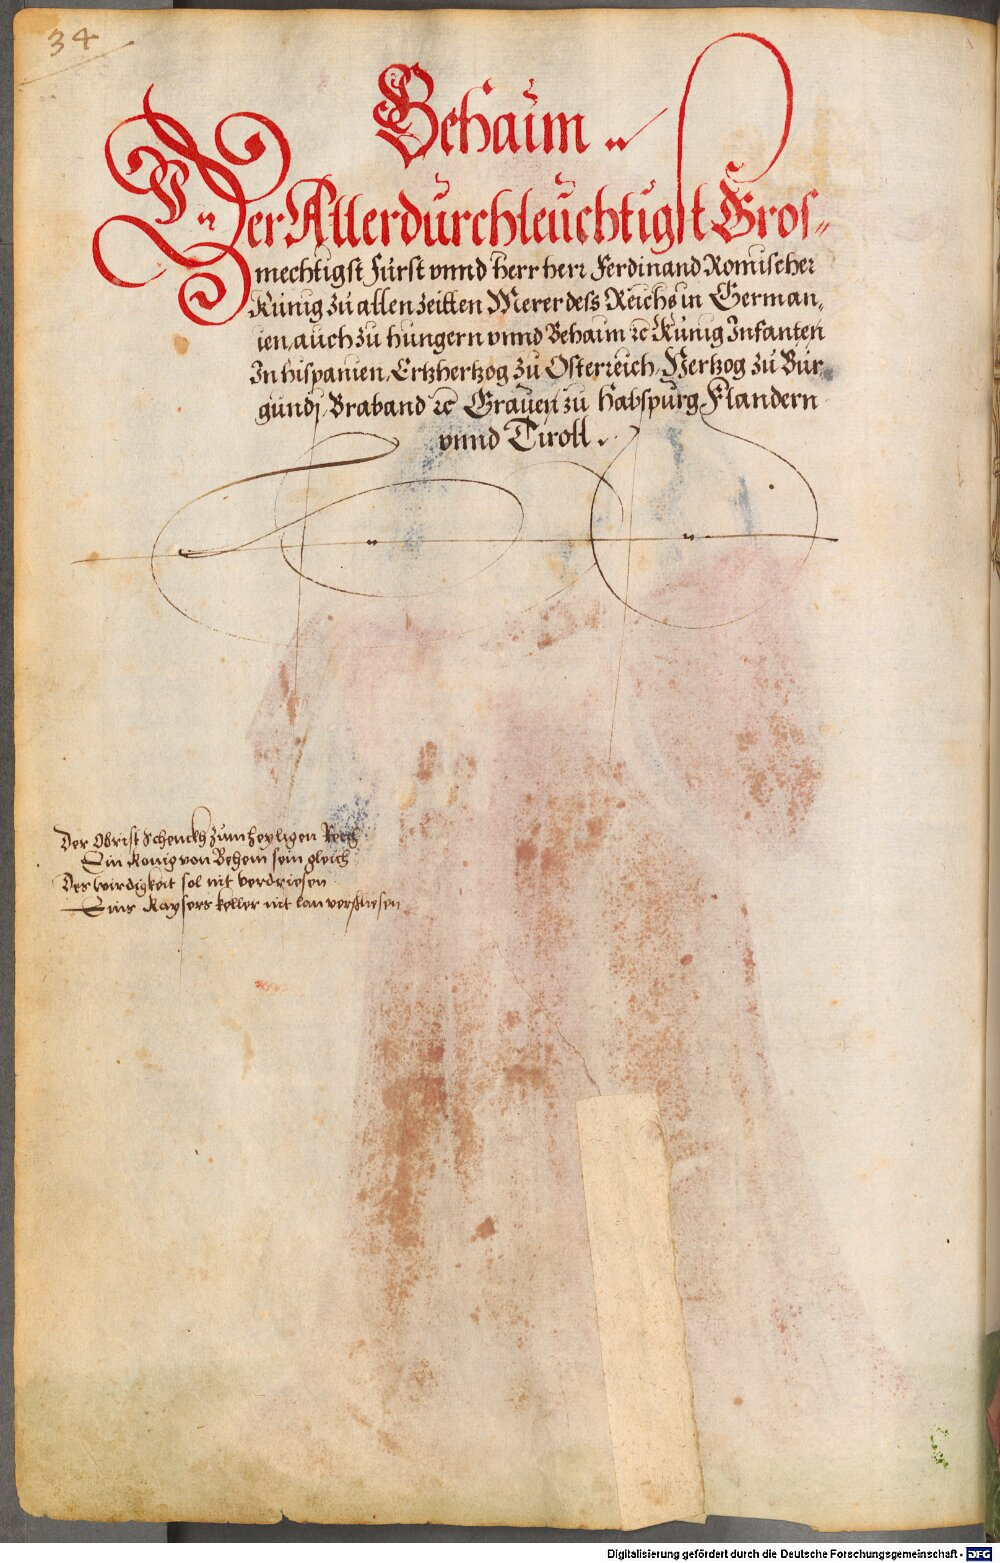 34
Behaim
Der Allerdurchleuchtigst Gros-
mechtigst Fürst vnnd herr herr Ferdinand Romischer
Künig zu allen zeitten Merer dess Reichs in German,
ien, auch zu hungern vnnd Behaim ꝛc Künig Infanten
In hispanien, Ertzhertzog zu Osterreich, Hertzog zu Bur,
gundj, Braband ꝛc Grauen zu habspurg, Flandern
vnnd Tiroll.
Der Obrist Schenckh zum heyligen Reich
Ein Konig von Behem sein gleich
Des wirdigkeit sol nit verdriesen
Eins Kaysers keller nit lan verschliesen
Digitalisierung gefördert durch die Deutsche Forschungsgemeinschaft - DFG